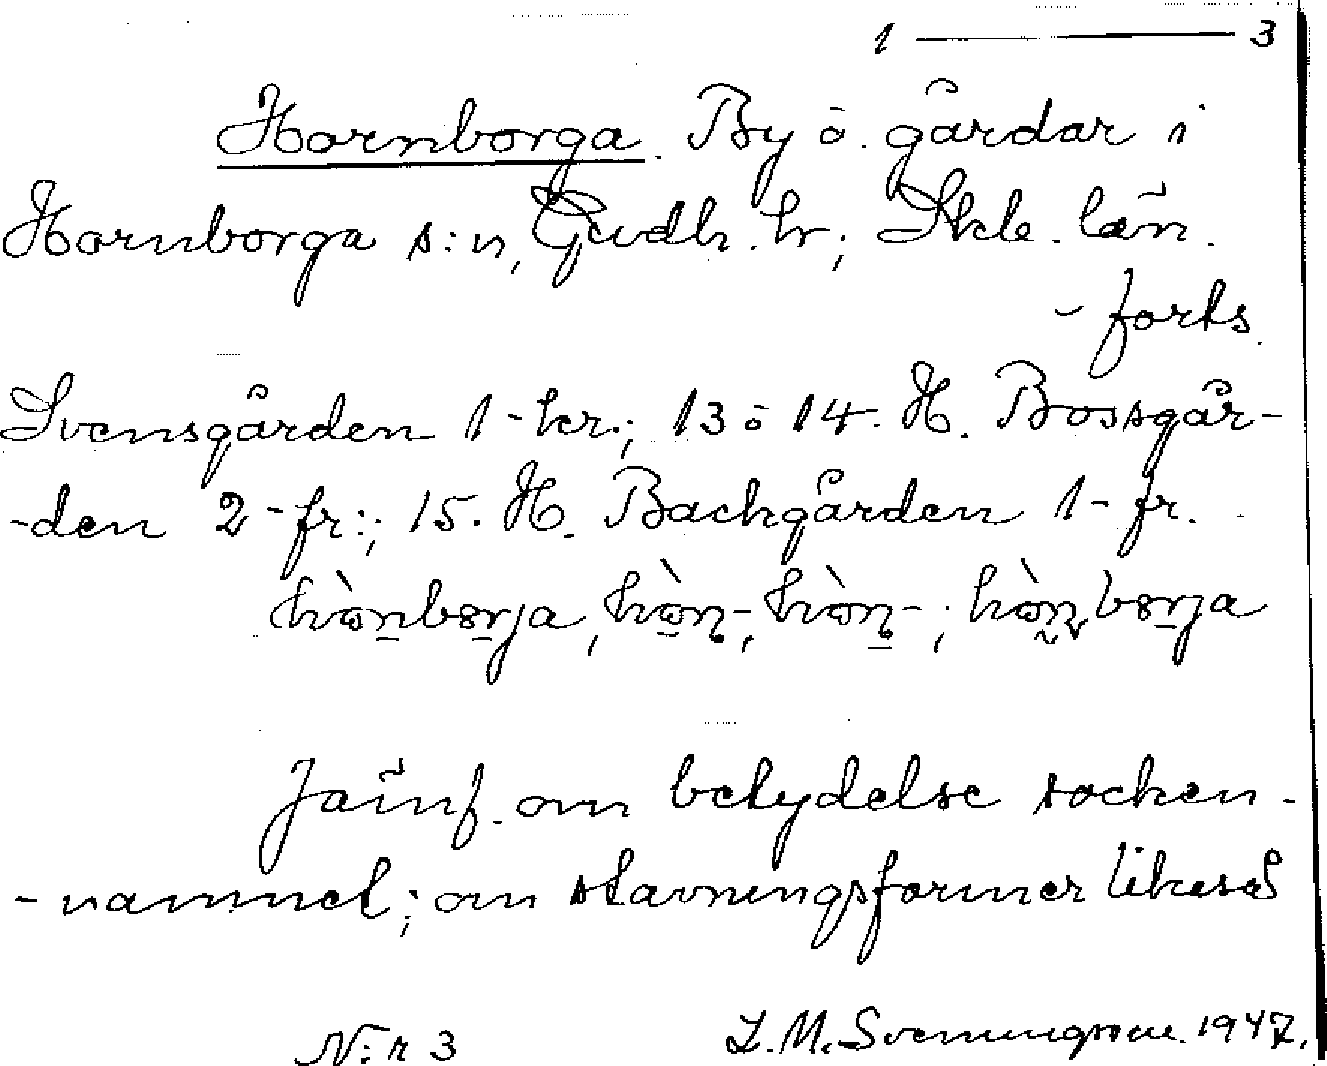 1 ——— 3
Hornborga. By o. gårdar i
Hornborga s:n, Gudh. hr; Skb. län.
- forts.
Svensgården 1-kr.; 13 o 14. H. Bossgår-
-den 2-fr.; 15. H. Backgården 1-fr.
Jämf. om betydelse socken-
-namnet; om stavningsformer likaså
N:r 3 L. M. Svenungsson 1947.